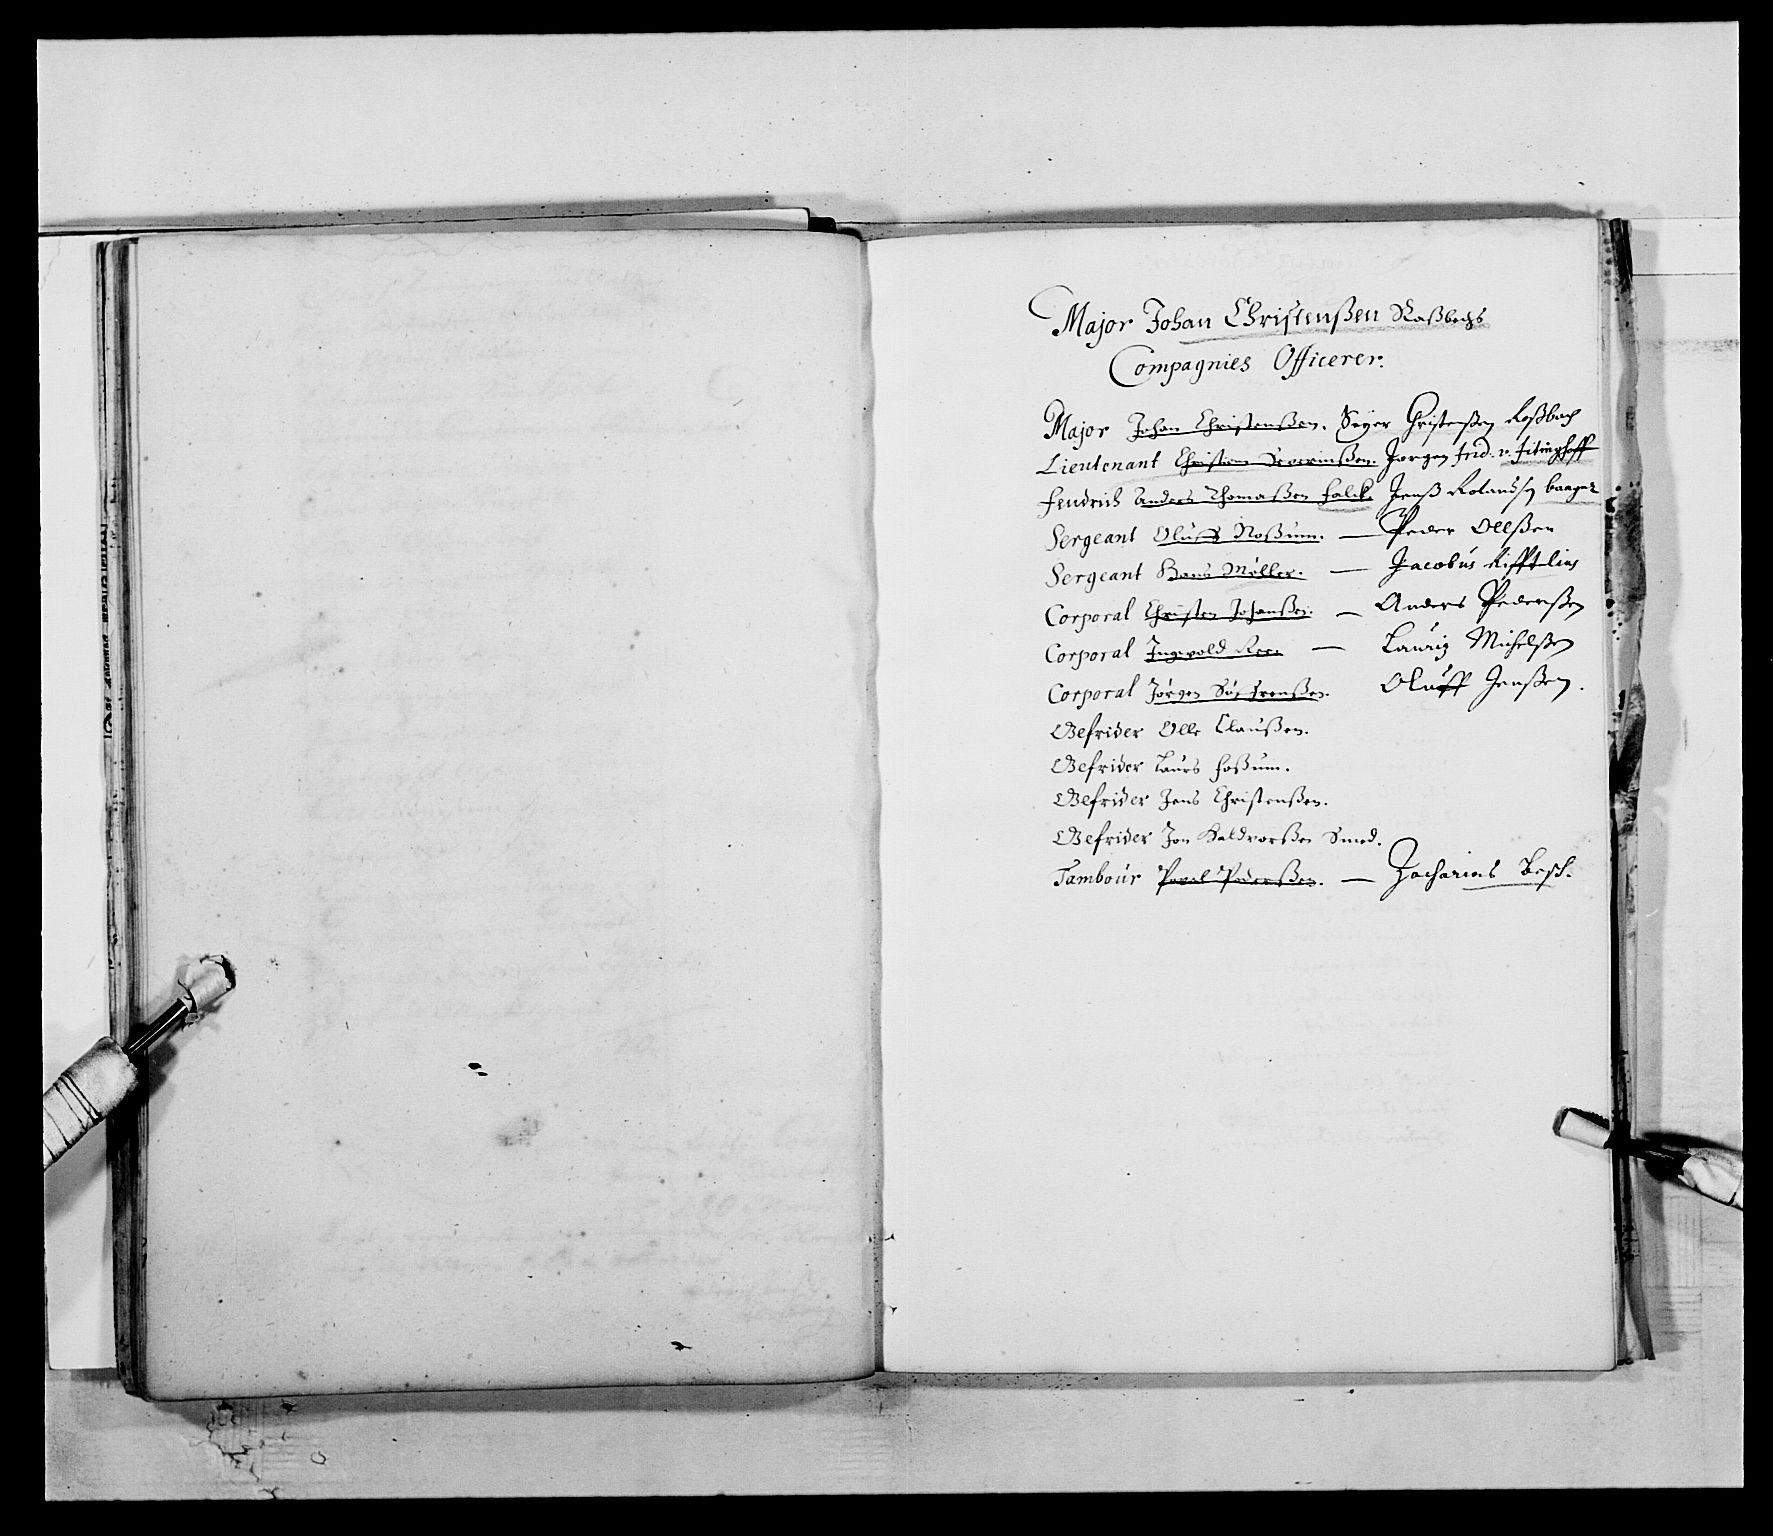 Major Johan Christenßen Roßbechs
Compagnies Officerer.
Major Johan Christenßen. Seyer Christenßen Roßbach
Lieutenant Christian Severinßen. Jørgen frid. v. fitinghoff
fendrich Anders Thomaßen falck. Jens Rolandsen baager
Sergeant Oluff Roßum. — Peder Ollßen
Sergeant Hans Møller. — Jacobus
Corporal Christen Johanßen. — Anders Pederßen
Corporal Ingevold — Lauriz Michelßen
Corporal Jørgen Oluff Jenßen.
Gefrider Olle Claußen.
Gefrider Laurs foßum.
Gefrider Jens Christenßen.
Gefrider Jon Haldvorßen Smed.
Tambour Povel Pederßen. — Zacharias Besch.